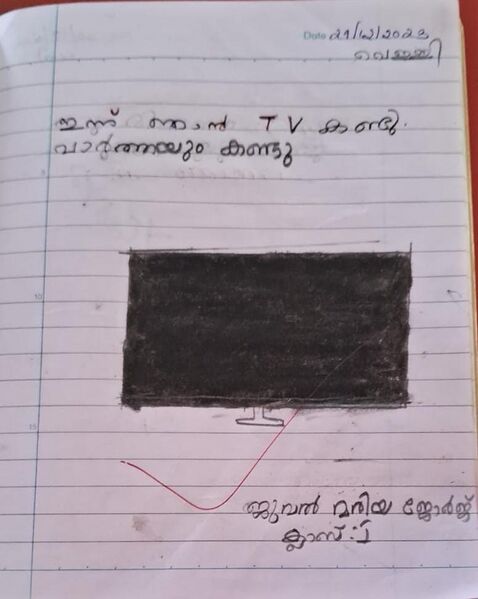 Date 21/12/2023
വെള്ളി
ഇന്ന് ഞാൻ TV കണ്ടു.
വാർത്തയും കണ്ടു
ജുവൽ മരിയ ജോർജ്
ക്ലാസ് : 1